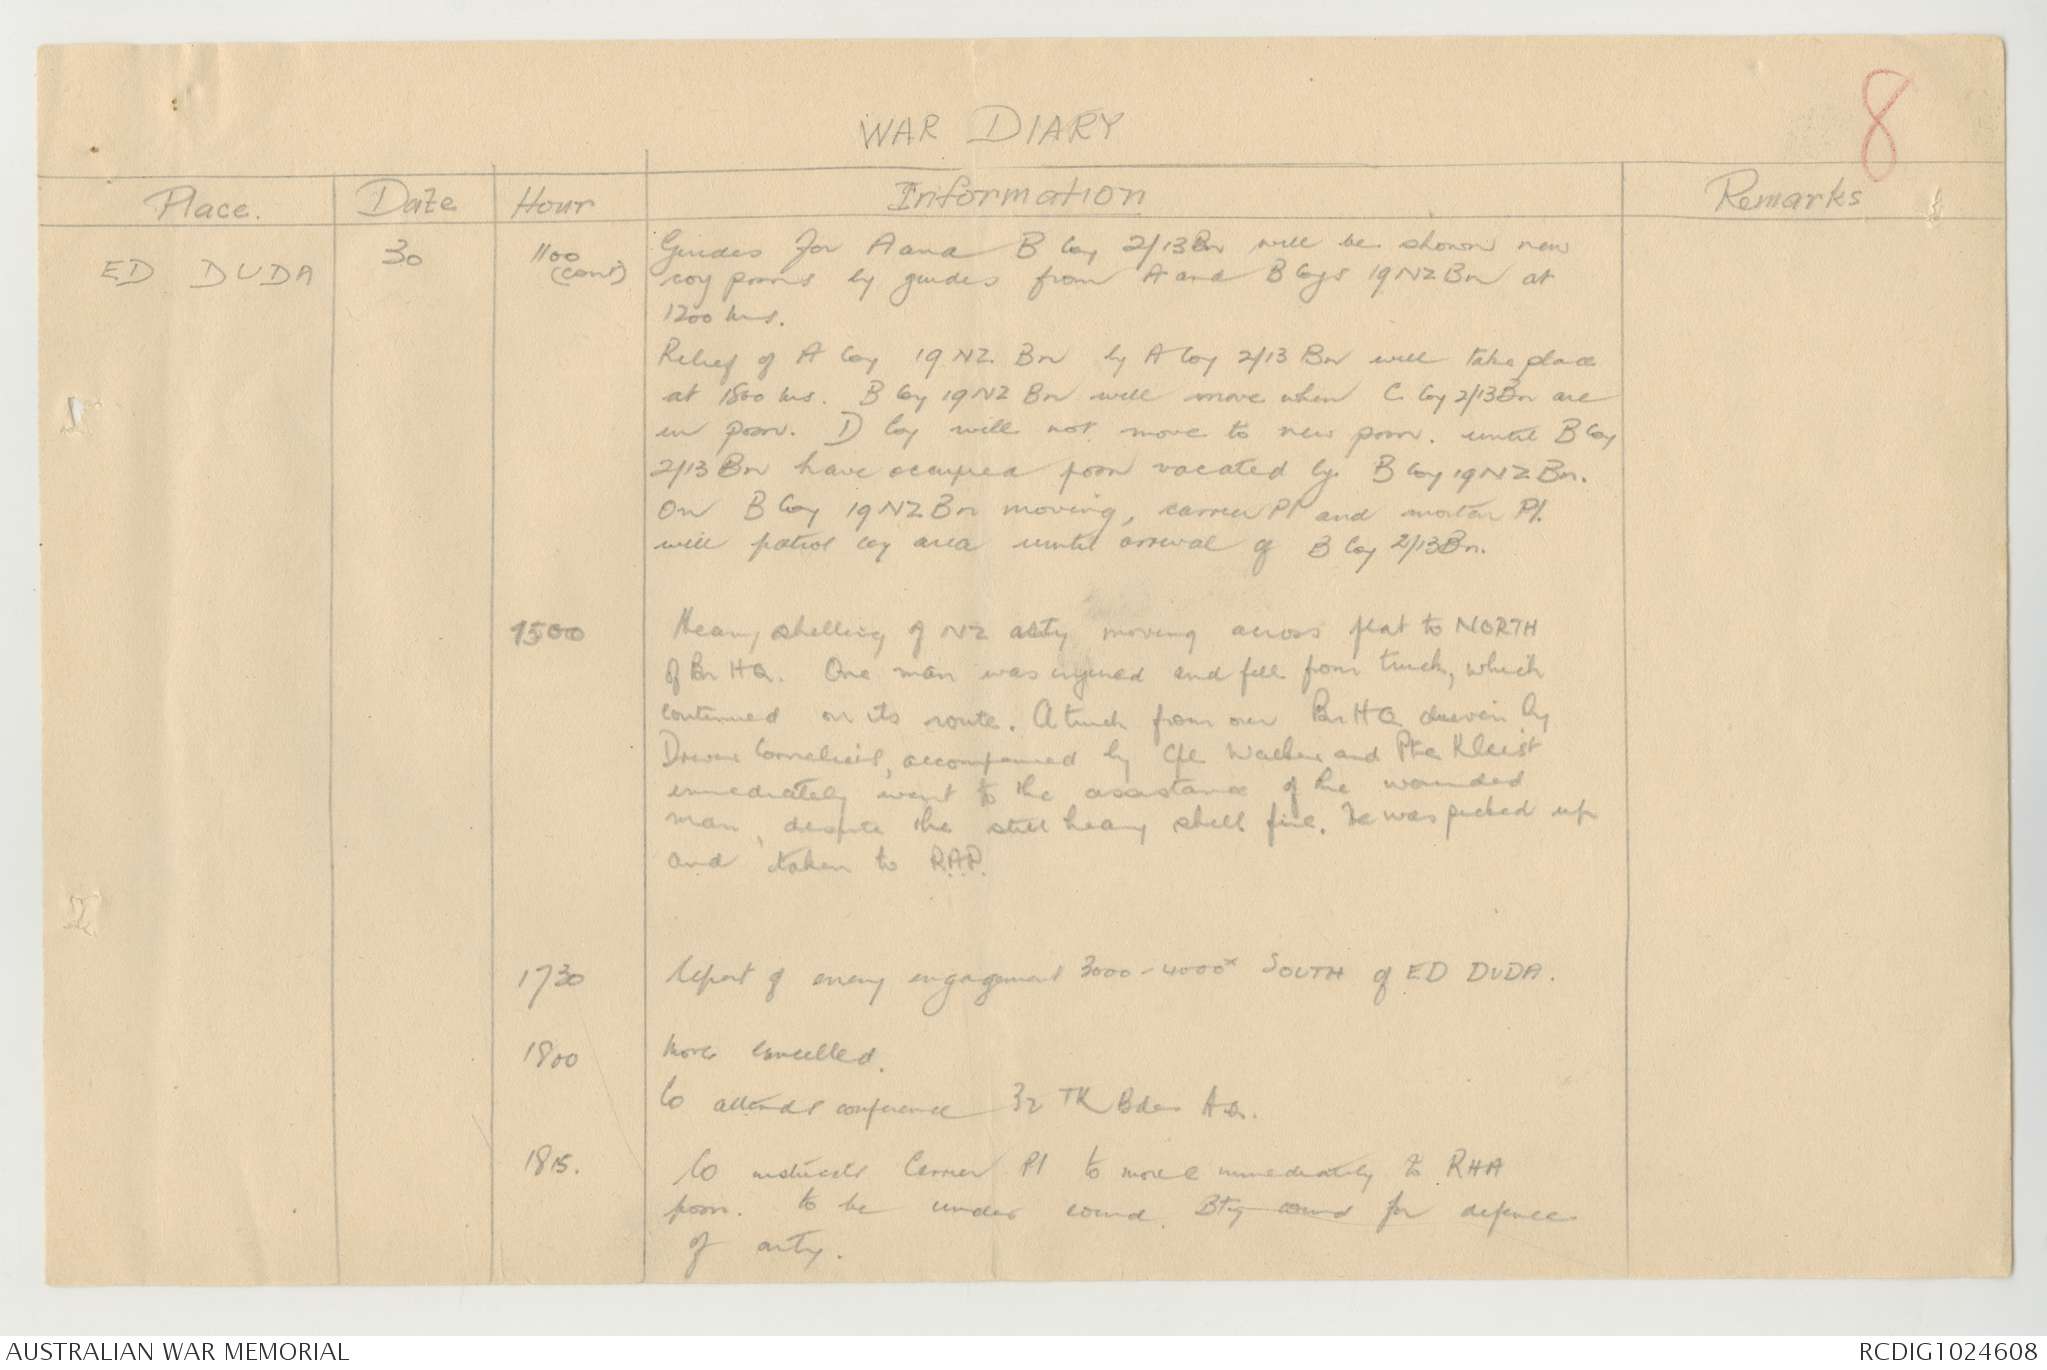 8
WAR DIARY
Place. Date Hour Information Remarks
ED DUDA 30 1100 (cont) Guides for A and B Coy 2/13 Bn will be shown new
coy posns by guides from A and B Coys 19 NZ Bn at
1200 hrs.
Relief of A Coy 19 NZ. Bn by A Coy 2/13 Bn will take place
at 1800 hrs. B Coy 19 NZ Bn will move when C Coy 2/13 Bn are
in posn. D Coy will not move to new posn. until B Coy
2/13 Bn have occupied posn vacated by B Coy 19 NZ Bn.
On B Coy 19 NZ Bn moving, carrier Pl and mortar Pl.
will patrol coy area until arrival of B Coy 2/13 Bn.
1500 Heavy shelling of NZ arty moving across flat to NORTH
of Bn HQ. One man was injured and fell from truck, which
continued on its route. A truck from our Bn HQ driven by
Driver Cornelius, accompanied by Cpl Walker and Pte Kleist
immediately went to the assistance of the wounded
man, despite the still heavy shell fire. He was picked up
and taken to R.A.P.
1730 Report of enemy engagement 3000 - 4000x SOUTH of ED DUDA.
1800 Move cancelled.
CO attends conference 32 TK Bde HQ.
1815. CO instructs Carrier Pl to move immediately to RHA
posn. to be under comd. Bty comd for defence
of arty.
AUSTRALIAN WAR MEMORIAL RCDIG1024608